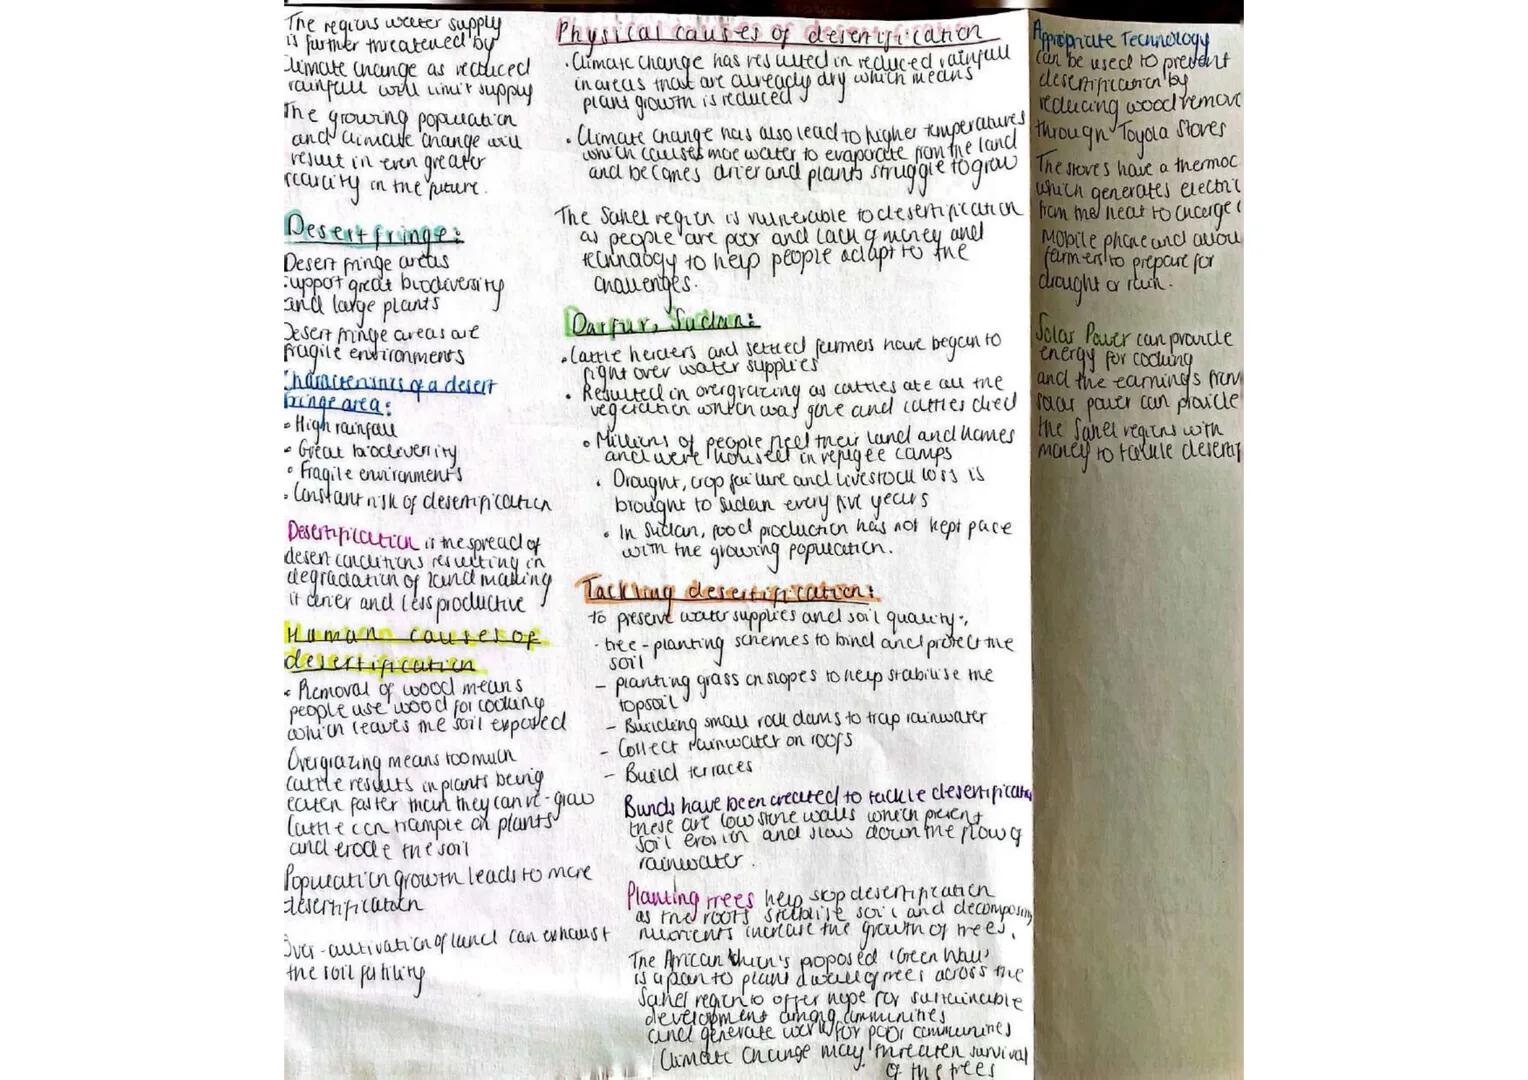 The regions water supply
is further threatened by
climate change as reduced
rainfall will limit supply
The growing population
and climate change will
result in even greater
scarcity in the future.
Desert fringe:
Desert fringe areas
support great biodiversity
and large plants
Desert fringe areas are
fragile environments
Characteristics of a desert
fringe area:
• High rainfall
• Great biodiversity
• Fragile environments
• Constant risk of desertification
Desertification is the spread of
desert conditions resulting in
degradation of land making
it drier and less productive
Human causes of
desertification
• Removal of wood means
people use wood for cooking
which leaves the soil exposed
Overgrazing means too much
cattle results in plants being
eaten faster than they can re-grow
Cattle can trample on plants
and erode the soil
Population growth leads to more
desertification
Over-cultivation of land can exhaust
the soil fertility
Physical causes of desertification
• Climate change has resulted in reduced rainfall
in areas that are already dry which means
plant growth is reduced
• Climate change has also lead to higher temperatures
which causes more water to evaporate from the land
and becomes drier and plants struggle to grow
The Sahel region is vulnerable to desertification
as people are poor and lack of money and
technology to help people adapt to the
challenges.
Darfur, Sudan:
• Cattle herders and settled farmers have began to
fight over water supplies
• Resulted in overgrazing as cattles ate all the
vegetation which was gone and cattles died
• Millions of people fleel their land and homes
and were housed in refugee camps
• Drought, crop failure and livestock loss is
brought to Sudan every five years
• In Sudan, food production has not kept pace
with the growing population.
Tackling desertification:
to preserve water supplies and soil quality:
- tree-planting schemes to bind and protect the
soil
- planting grass on slopes to help stabilise the
topsoil
- Building small rock dams to trap rainwater
- Collect rainwater on roofs
- Build terraces
Bunds have been created to tackle desertification
these are low stone walls which prevent
soil erosion and slow down the flow of
rainwater.
Planting trees help stop desertification
as the roots stabilise soil and decomposing
nutrients increase the growth of trees.
The African Union's proposed 'Green Wall'
is a plan to plant a wall of trees across the
Sahel region to offer hope for sustainable
development among communities
and generate work for poor communities
Climate change may threaten survival
of the trees
Appropriate Technology
can be used to prevent
desertification by
reducing wood remov
through Toyola Stoves
The stoves have a thermoc
which generates electric
from the heat to charge
Mobile phone and allow
farmers to prepare for
drought or rain.
Solar Power can provide
energy for cooking
and the earnings from
solar power can provide
the Sahel regions with
money to tackle desertif